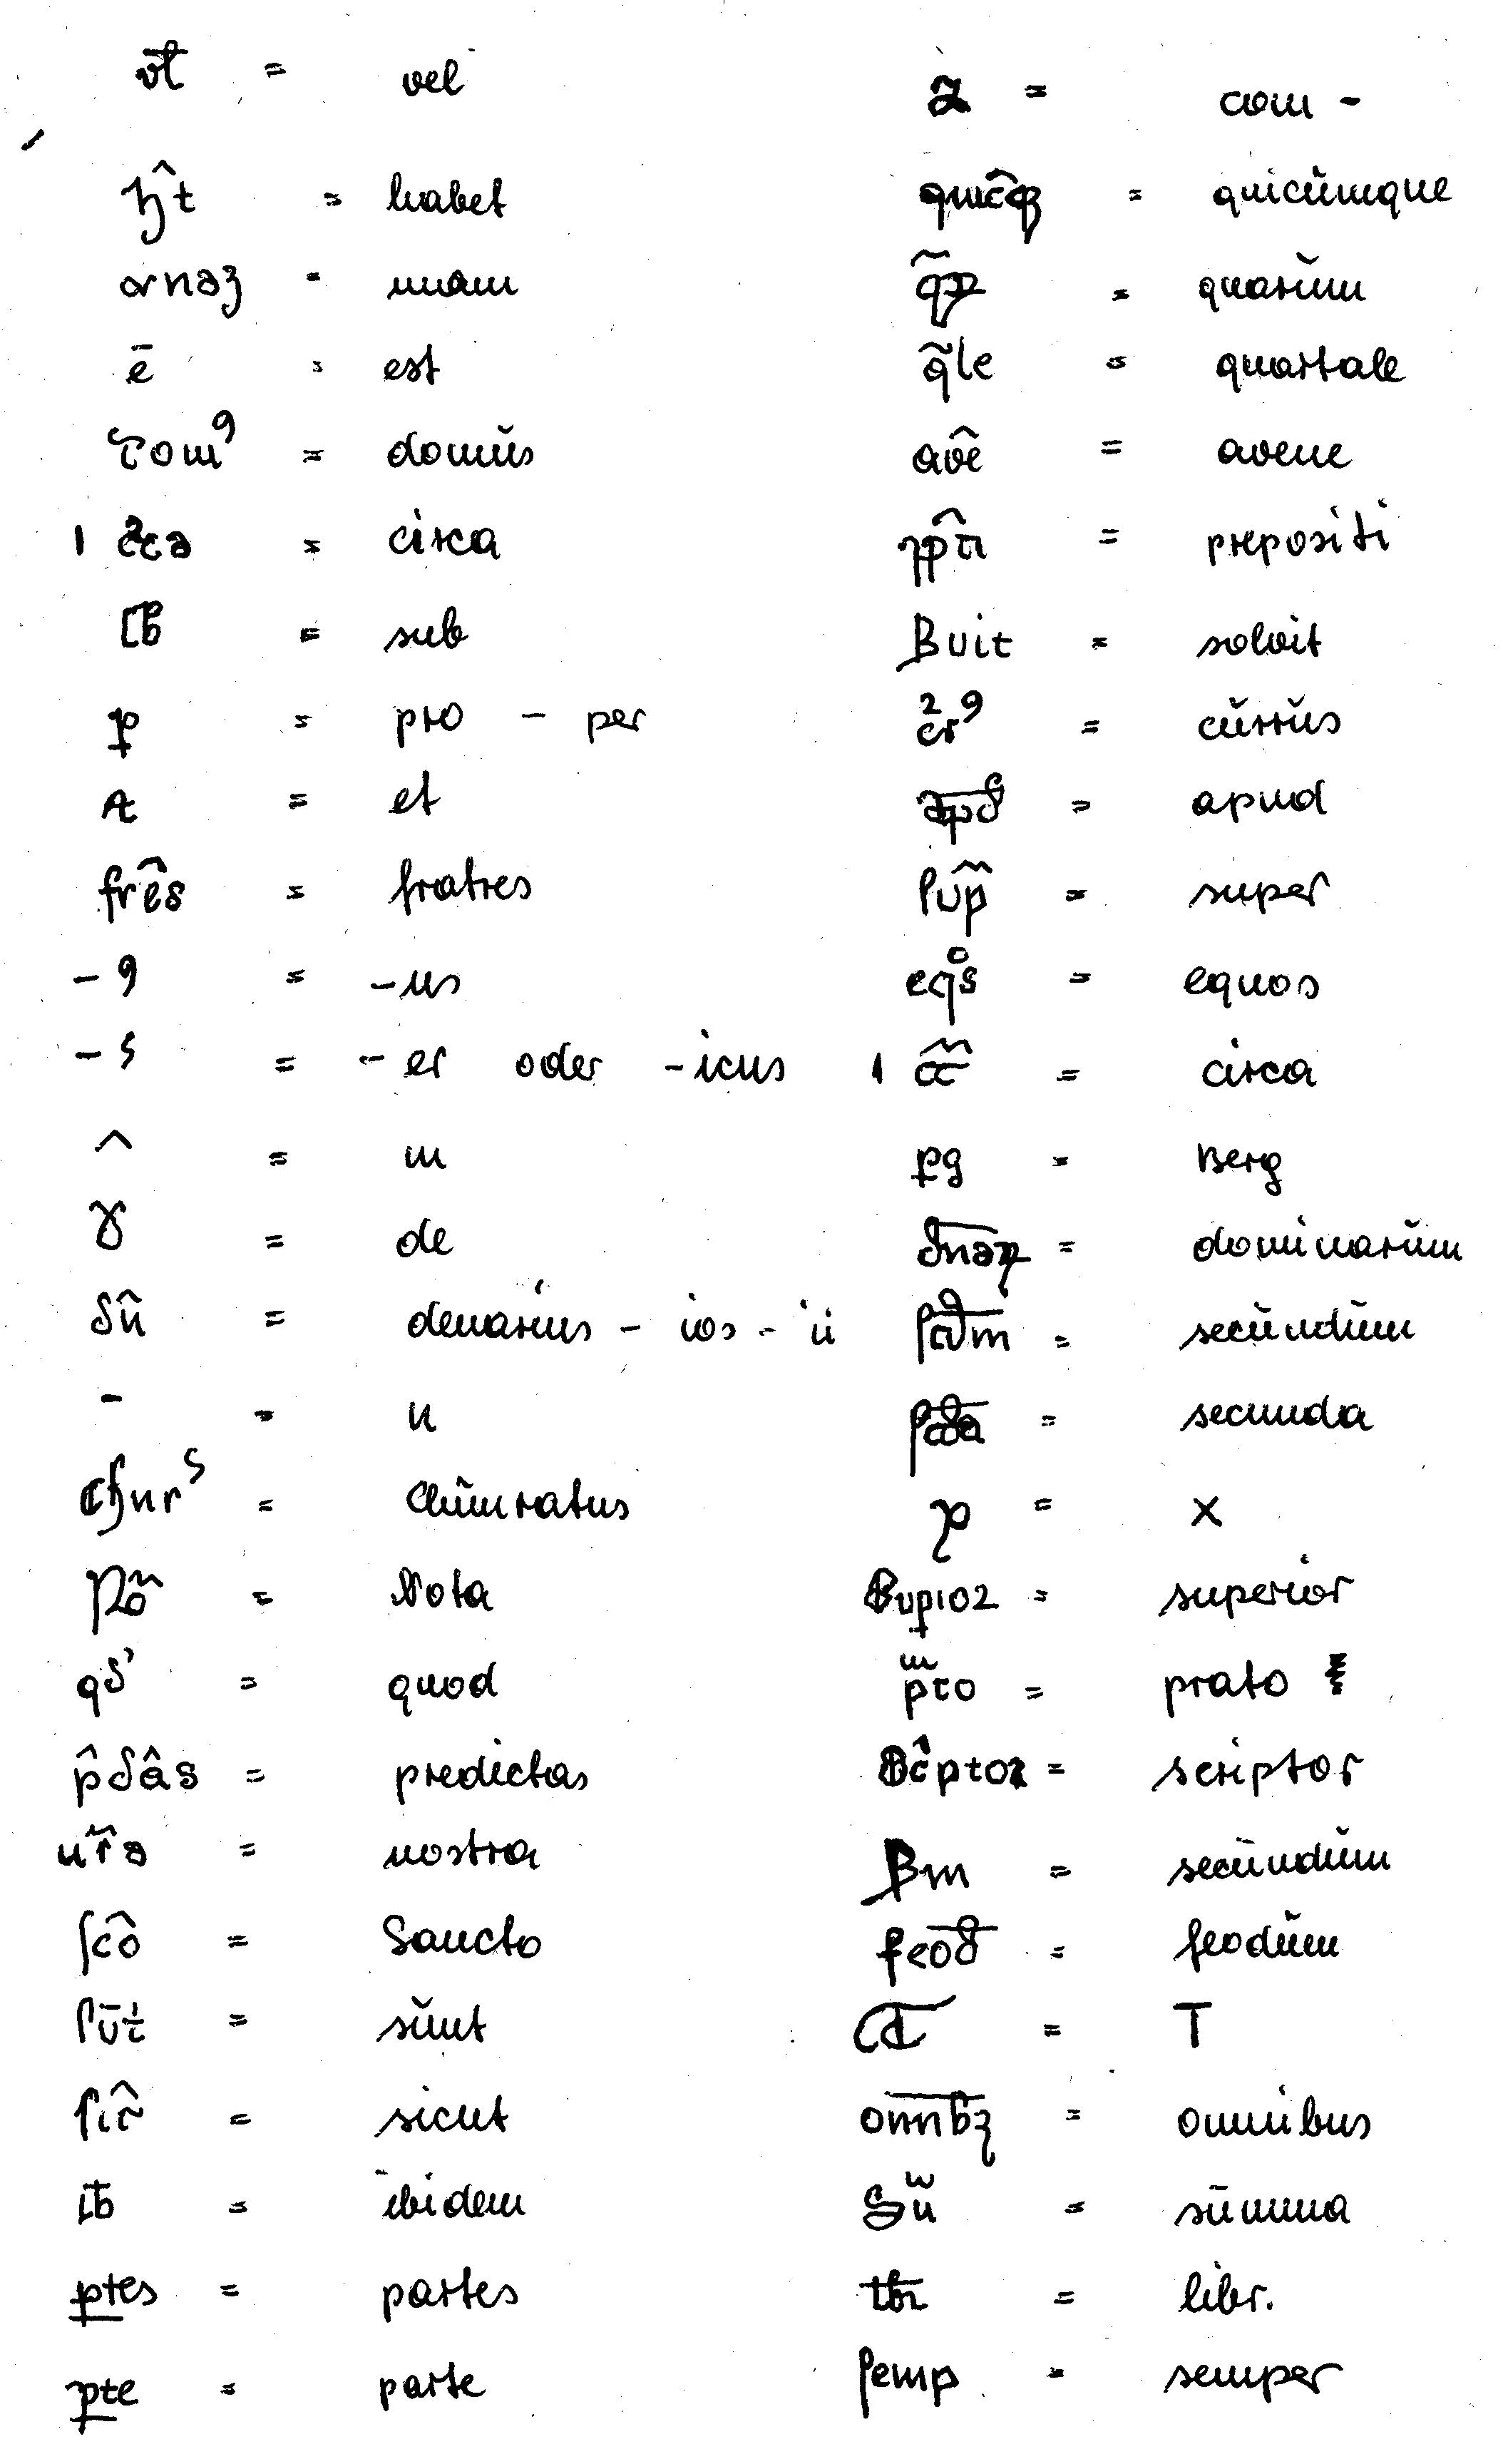 vł = vel
ħt̂ = habet
vnaȝ = unam
ē = est
dom⁹ = domŭs
1 c²ca = circa
ſƀ = sub
ꝑ = pro - per
⁊ = et
frês = fratres
- 9 = - us
- ς = - er oder - icus
^ = m
ꝺ = de
δn̂ = denarius - ios - ii
- = n
Chnrˢ = Chŭnratus
No͂ = Nota
qδ' = quod
p̂δâs = predictas
nr͂a = nostra
ſcô = Sancto
ſūt = sŭnt
ſiĉ = sicut
iƀ = ibidem
ꝑtes = partes
ꝑte = parte
ꝯ = com -
quic̄qȝ = quicŭmque
q͂ꝝ = quarŭm
q͂le = quartale
avê = avene
pp̂ti = prepositi
ẞuit = solvit
c²r⁹ = cŭrrŭs
ap̄δ = apud
ſup͂ = super
eq°s = equos
1 cc͂ = circa
ꝑg = Berg
δn̄aꝝ = dominarŭm
ſcδ̄m = secŭndŭm
ſcδ̄a = secunda
x = x
Suꝑioꝛ = superior
p͂to = prato
Sĉptoꝛ = scriptor
ẞm = secŭndŭm
feoδ̄ = feodŭm
T = T
om̄nbȝ = omnibus
Su͂ = sŭmma
lƀr = libr.
ſemꝑ = semper